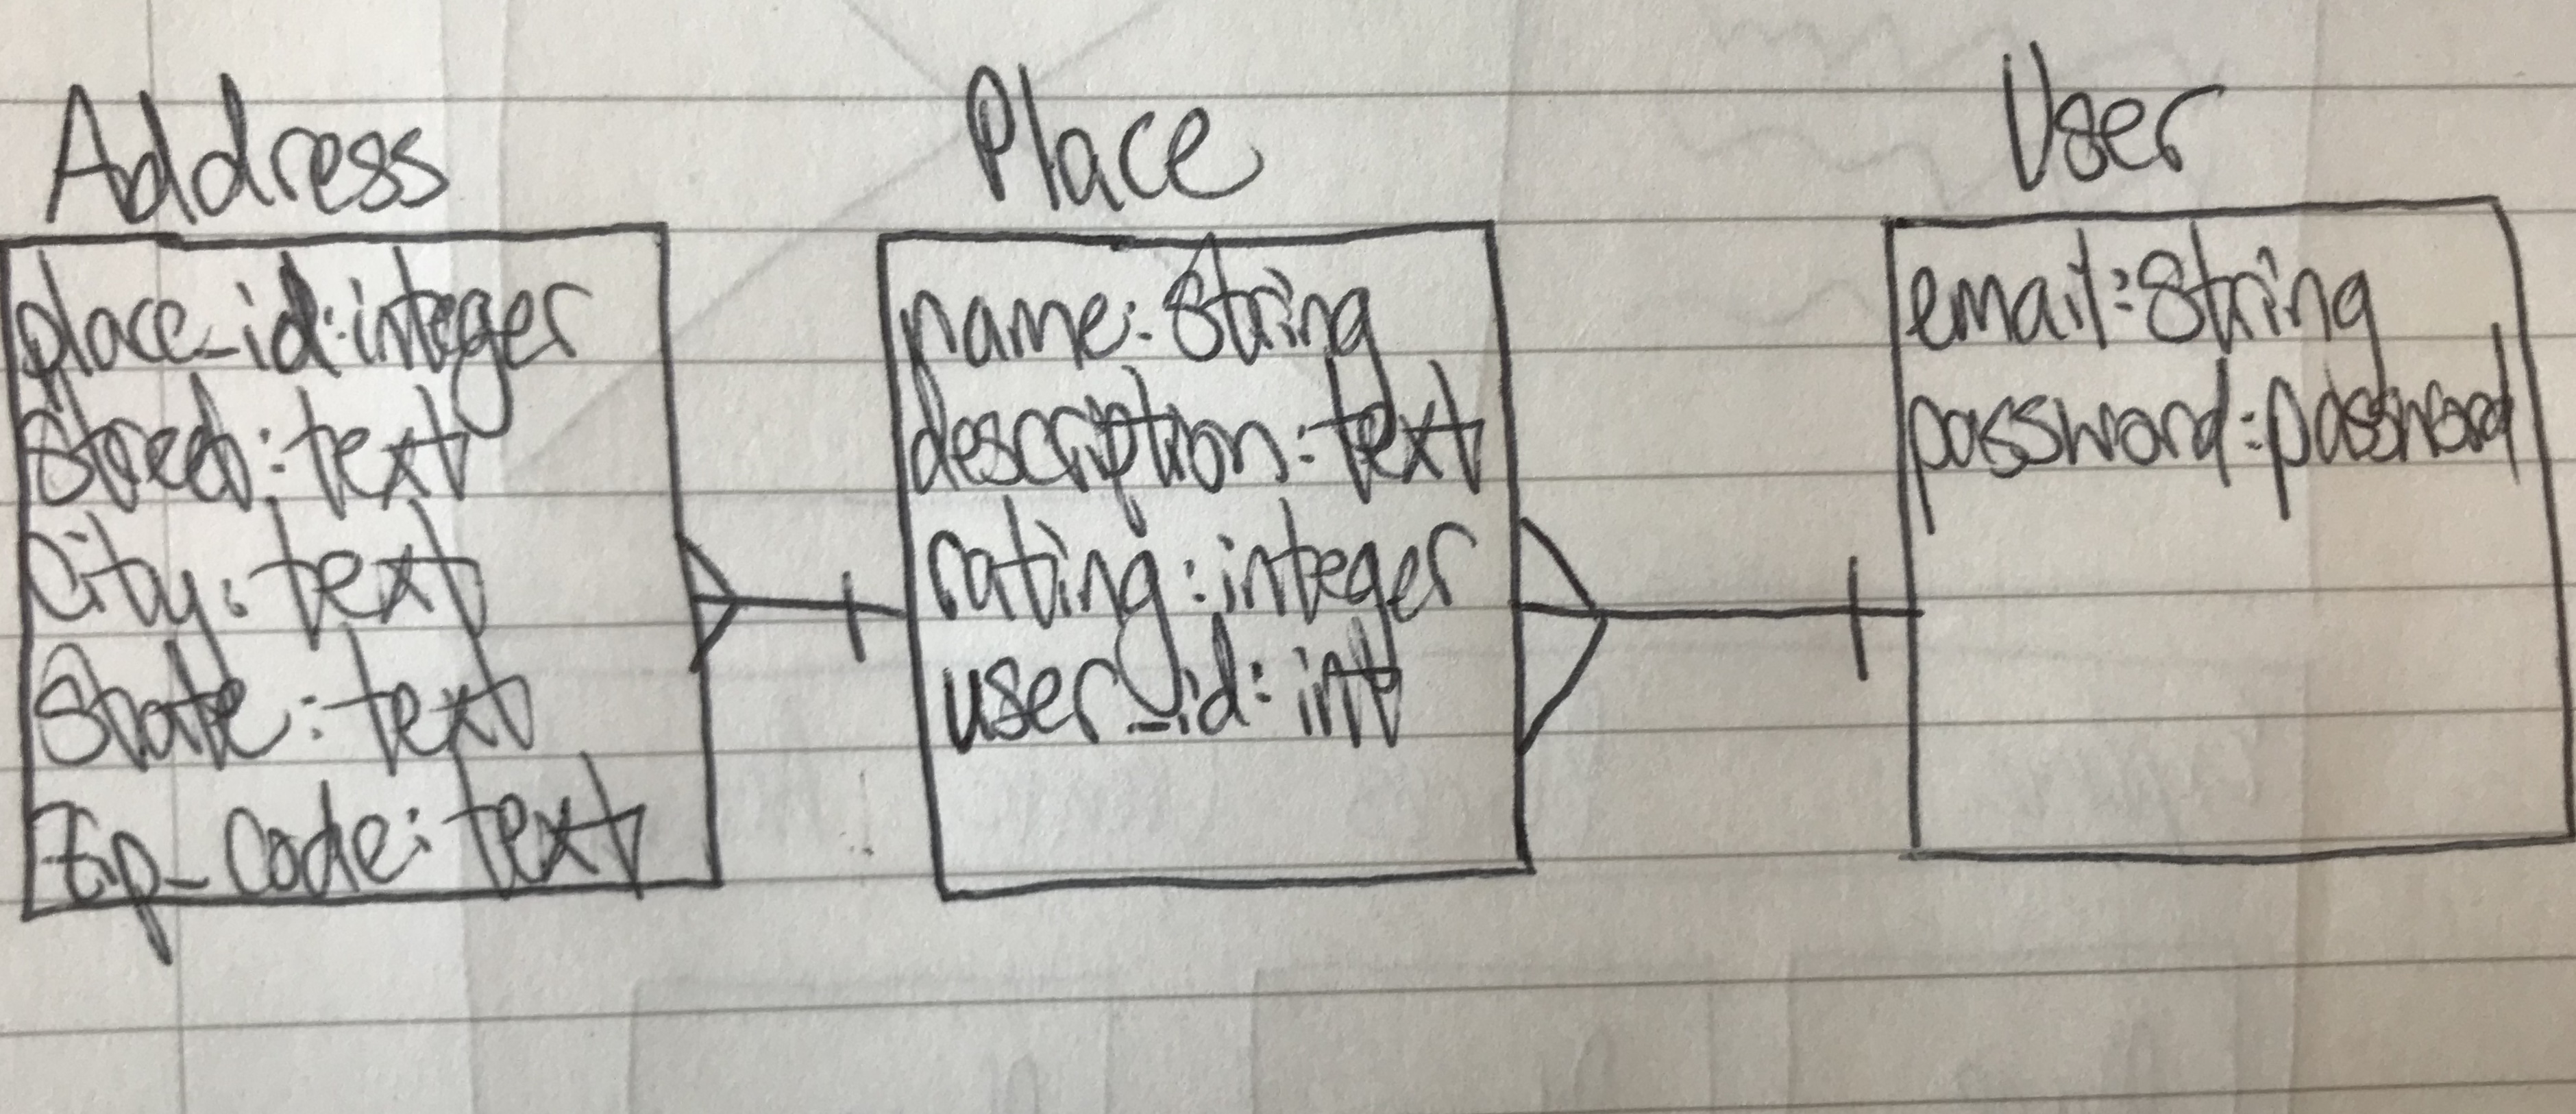 Address
place_id:integer
Street:text
City:text
State:text
Zip_Code:text
Place
name:String
description:text
rating:integer
user_id:int
User
email:String
password:password